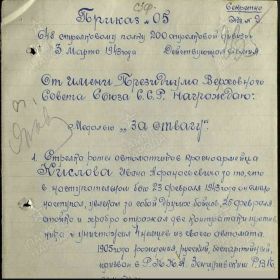 Секретно
Экз № 2
Приказ № 05
648 стрелковому полку 200 стрелковой дивизии
3 Марта 1943 года Действующая армия
От имени Президиума Верховного
Совета Союза С.С.Р. Награждаю:
Медалью „За отвагу":
1. Стрелка роты автоматчиков красноармейца
Кислова Ивана Афанасьевича за то, что
в наступательном бою 23 февраля 1943 г он
наступая, увлекал за собой других бойцов, 25 февраля
стойко и храбро отражал две контратаки против-
ника и уничтожил 4 немцев из своего автомата
1905 года рождения, русский, беспартийный,
призван в Р.К.К.А. РВК